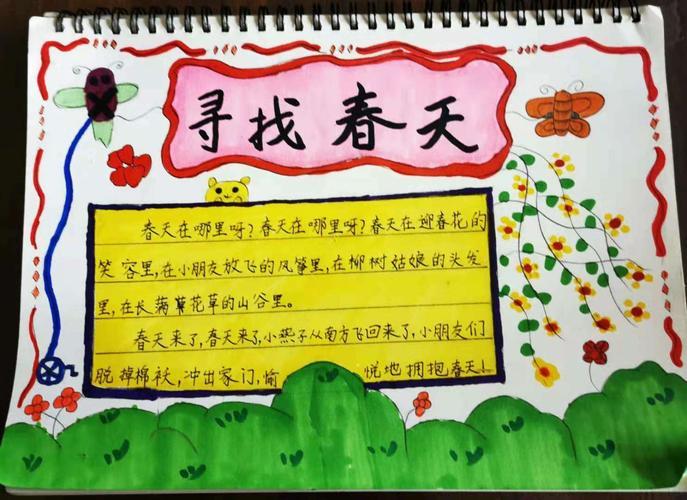 寻找春天
春天在哪里呀?春天在哪里呀?春天在迎春花的
笑容里,在小朋友放飞的风筝里,在柳树姑娘的头发
里,在长满草花草的山谷里。
春天来了,春天来了,小燕子从南方飞回来了,小朋友们
脱掉棉袄,冲出家门,愉悦地拥抱春天!